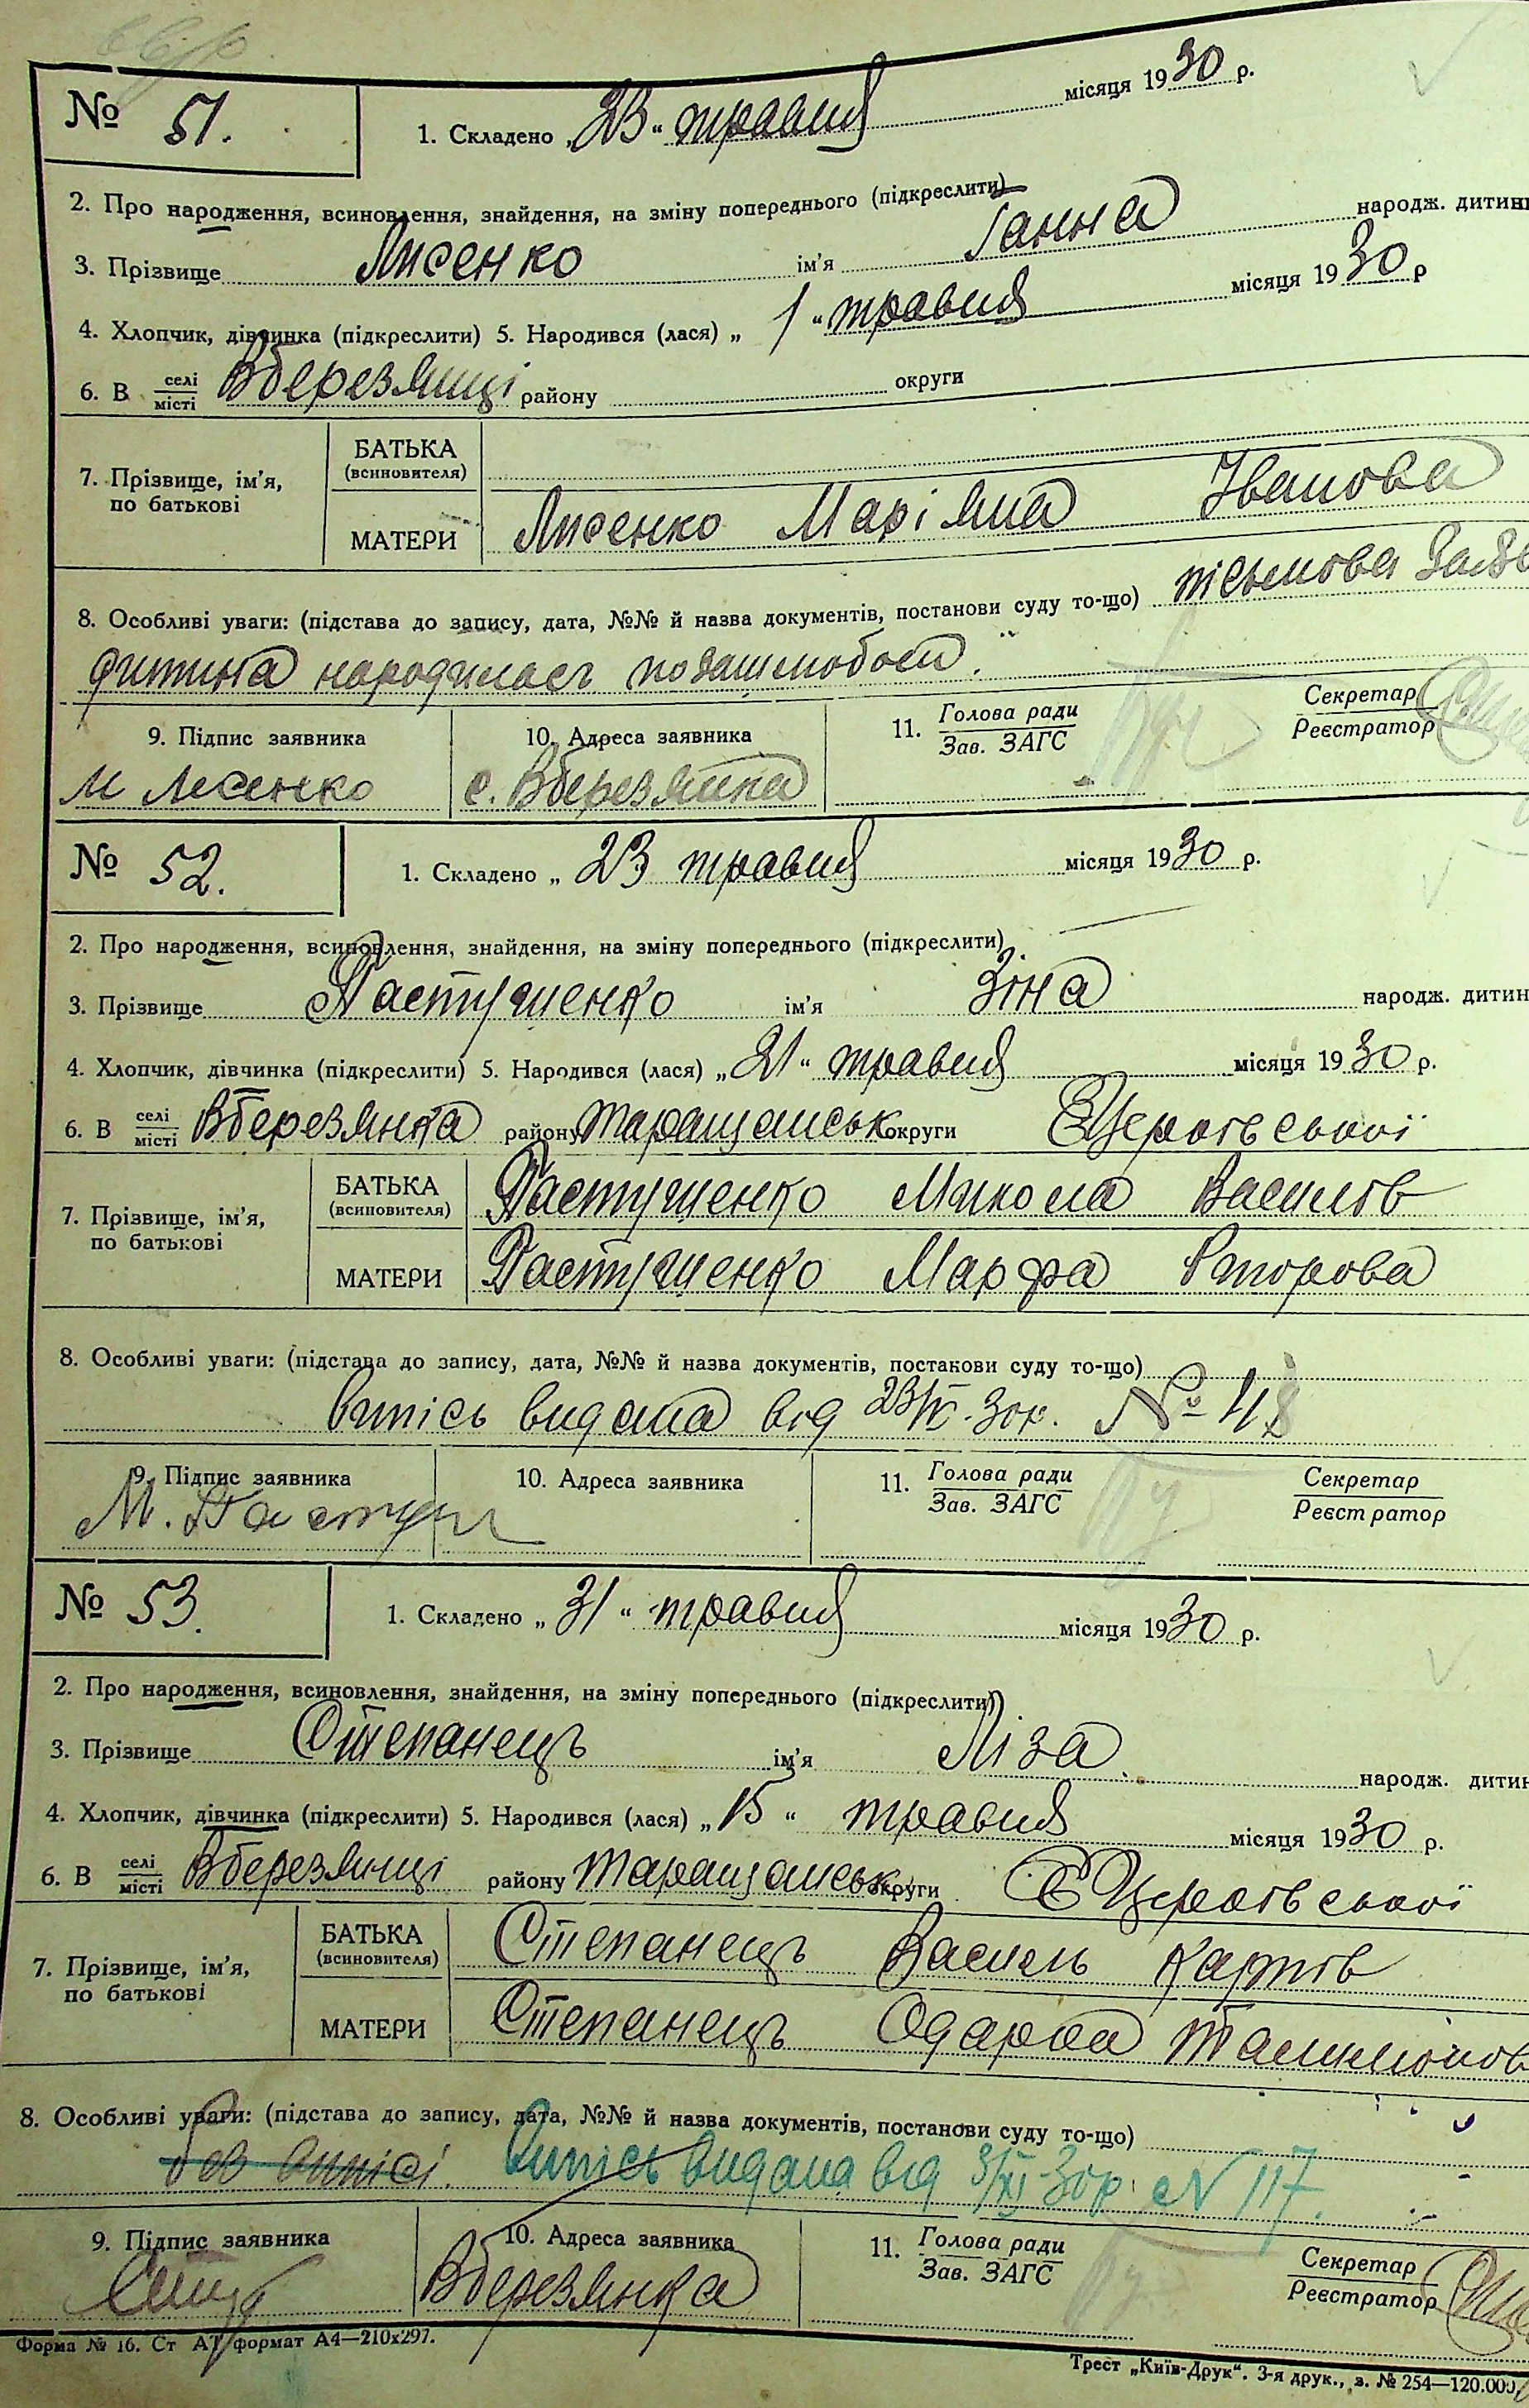 № 51.
1. Складено „23“ травня місяця 1930 р.
2. Про народження, всиновлення, знайдення, на зміну попереднього (підкреслити)
3. Прізвище Лисенко ім'я Ганна народж. дитини
4. Хлопчик, дівчинка (підкреслити) 5. Народився (лася) „1“ травня місяця 1930 р
6. В селі/місті Вберезянці району округи
7. Прізвище, ім'я, по батькові
БАТЬКА (всиновителя)
МАТЕРИ Лисенко Маріяна Іванова
8. Особливі уваги: (підстава до запису, дата, №№ й назва документів, постанови суду то-що) пісьмова
дитина народилась позашлюбом.
9. Підпис заявника 10. Адреса заявника 11. Голова ради/Зав. ЗАГС Секретар/Реєстратор
М Лисенко с. Вберезянка
№ 52.
1. Складено „23 травня місяця 1930 р.
2. Про народження, всиновлення, знайдення, на зміну попереднього (підкреслити)
3. Прізвище Пастушенко ім'я Зіна народж. дитин
4. Хлопчик, дівчинка (підкреслити) 5. Народився (лася) „21“ травня місяця 1930 р.
6. В селі/місті Вберезянка району Таращанськ округи БЦерківської
7. Прізвище, ім'я, по батькові
БАТЬКА (всиновителя) Пастушенко Микола Василів
МАТЕРИ Пастушенко Марфа
8. Особливі уваги: (підстава до запису, дата, №№ й назва документів, постакови суду то-що)
Випісь видана від 30р. №
9. Підпис заявника 10. Адреса заявника 11. Голова ради/Зав. ЗАГС Секретар/Реєстратор
М. Пастуш
№ 53.
1. Складено „31“ травня місяця 1930 р.
2. Про народження, всиновлення, знайдення, на зміну попереднього (підкреслити)
3. Прізвище Степанець ім'я Ліза народж. дитин
4. Хлопчик, дівчинка (підкреслити) 5. Народився (лася) „15“ травня місяця 1930 р.
6. В селі/місті Вберезянці району Таращанськ округи БЦерківської
7. Прізвище, ім'я, по батькові
БАТЬКА (всиновителя) Степанець Василь Карпів
МАТЕРИ Степанець Одарка
8. Особливі уваги: (підстава до запису, дата, №№ й назва документів, постанови суду то-що)
без випісі. Випісь видана від 3/XI 30р. № 117.
9. Підпис заявника 10. Адреса заявника 11. Голова ради/Зав. ЗАГС Секретар/Реєстратор
Вберезянка
Форма № 16. Ст АТ формат А4—210х297.
Трест „Київ-Друк“. 3-я друк., з. № 254—120.000.